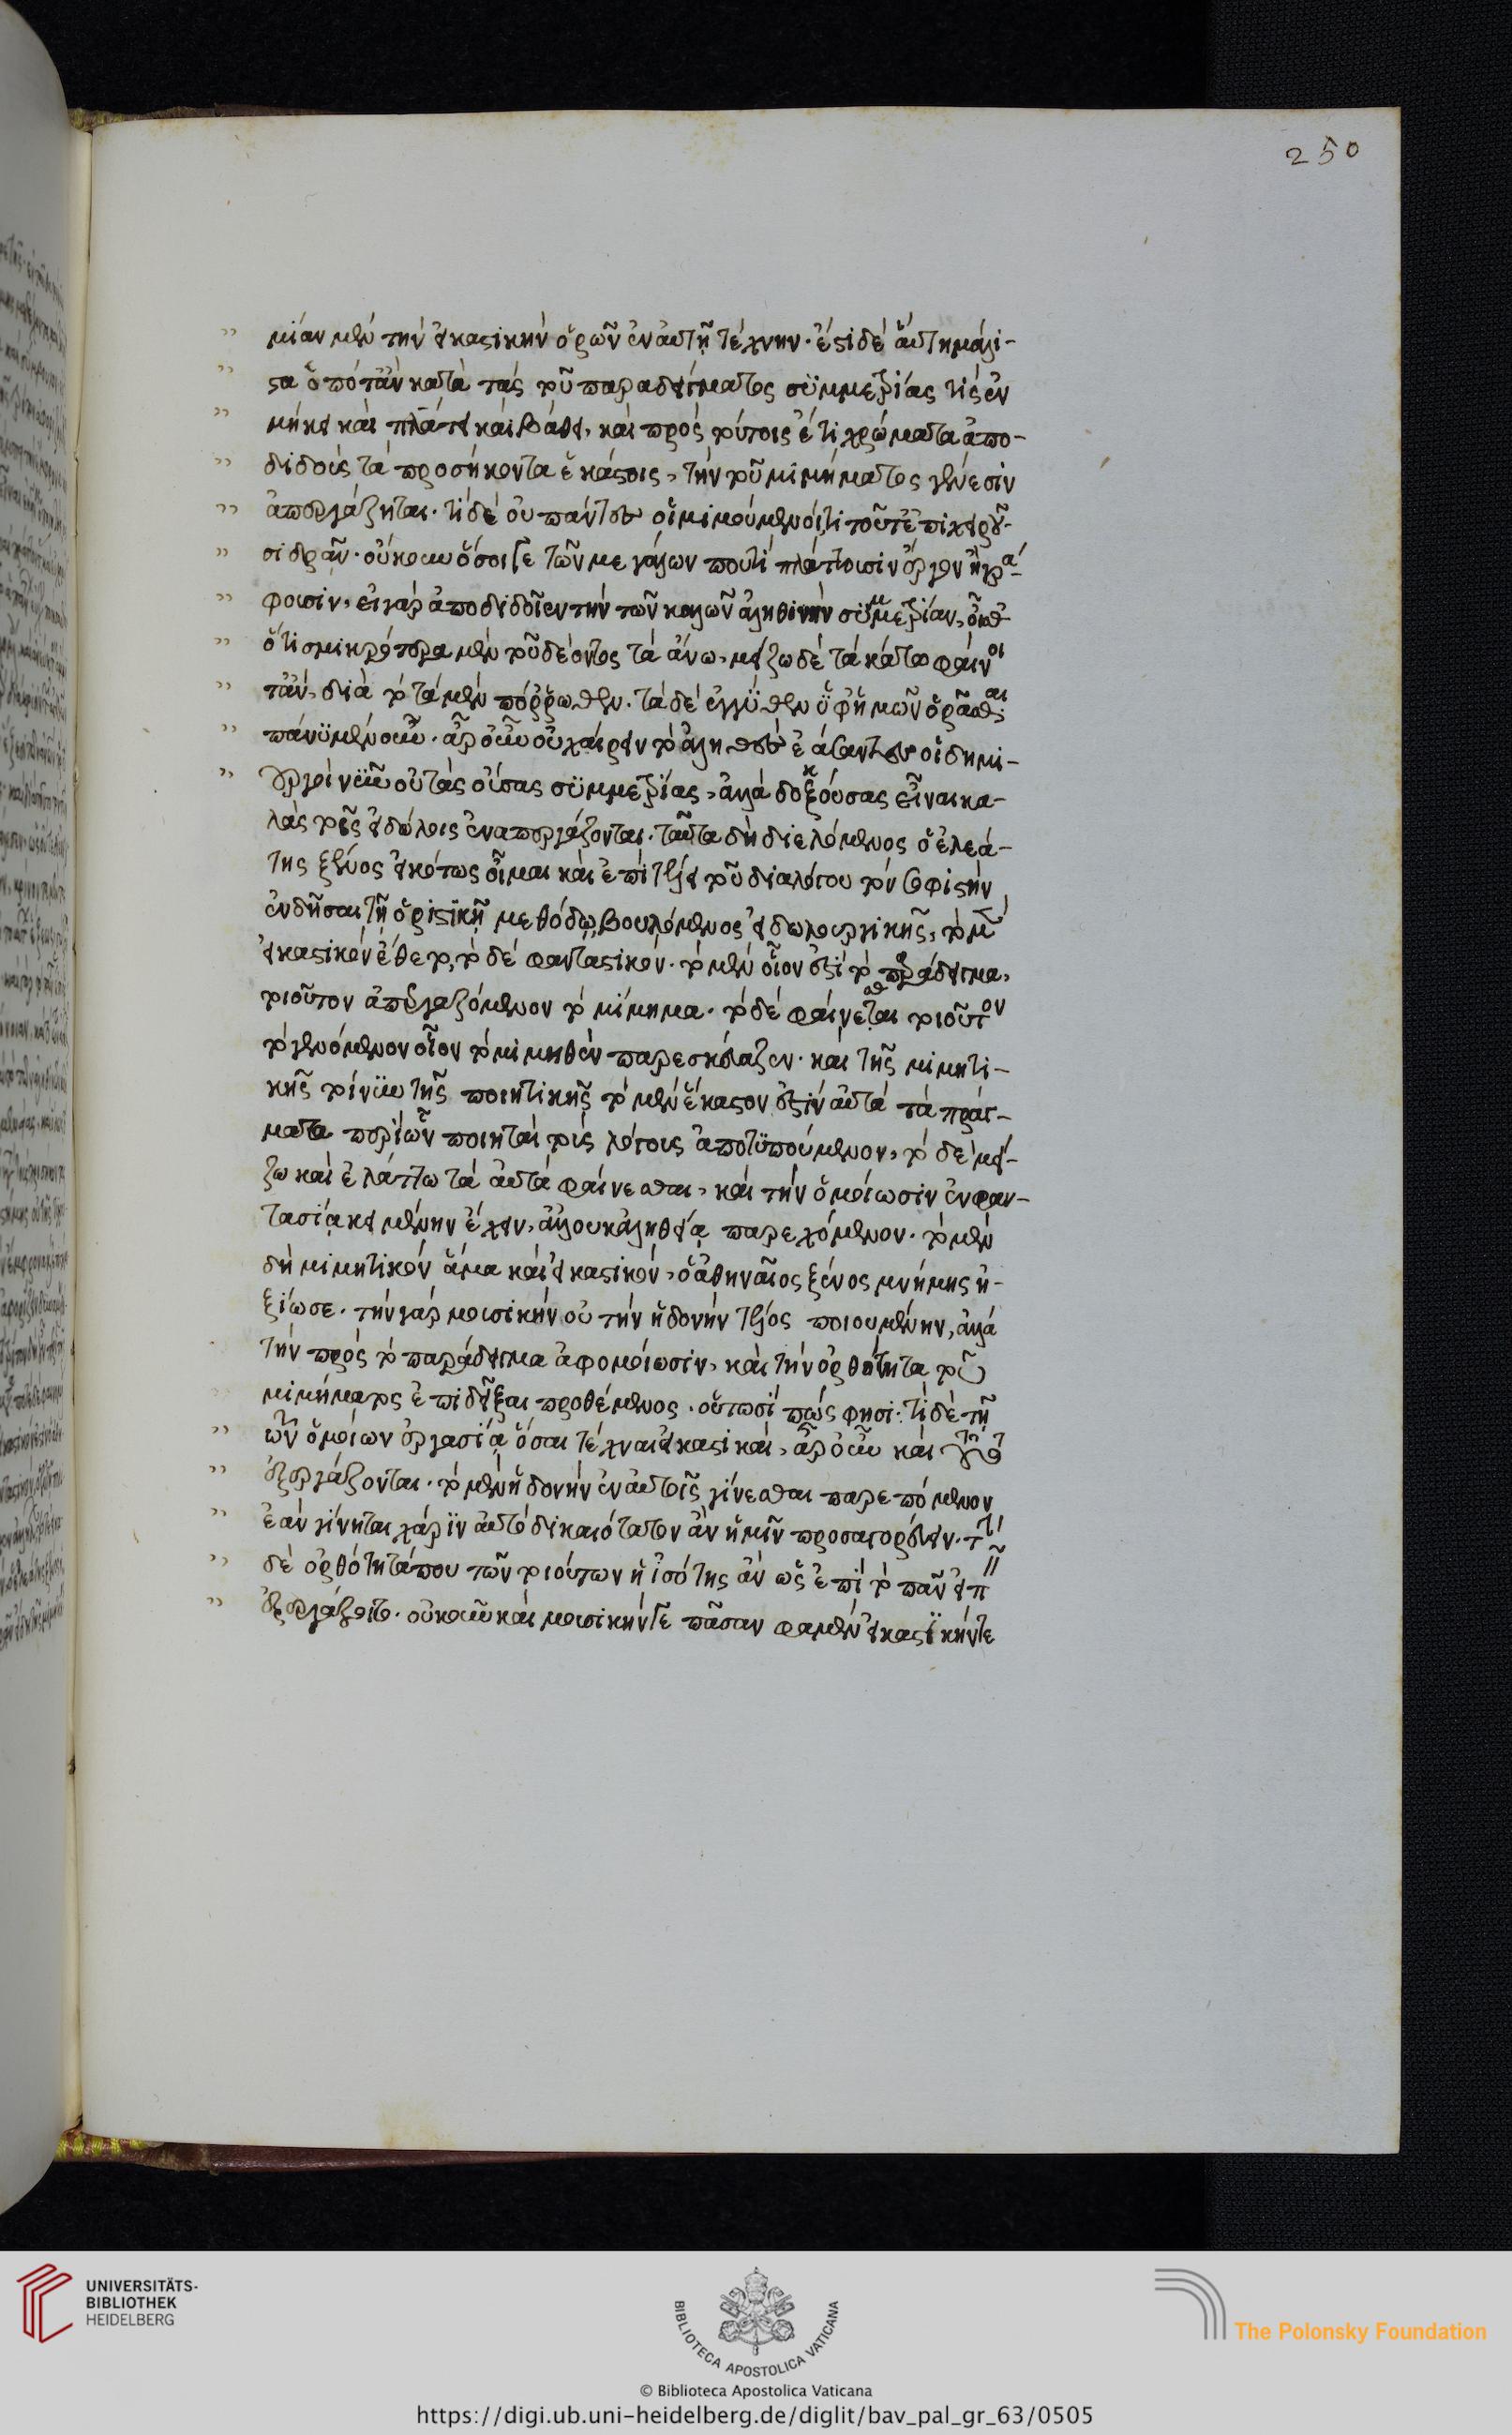 250
μίαν μὲν τὴν εἰκαστικὴν ὁρῶν ἐν αὐτῇ τέχνην. ἔστι δὲ αὕτη μάλι-
στα ὁπόταν κατὰ τὰς τοῦ παραδείγματος συμμετρίας τὶς ἐν
μήκει καὶ πλάτει καὶ βάθει, καὶ πρὸς τούτοις ἔτι χρώματα ἀπο-
διδοὺς τὰ προσήκοντα ἑκάστοις, τὴν τοῦ μιμήματος γένεσιν
ἀπεργάζηται. τί δὲ οὐ πάντες οἱ μιμούμενοί τι τοῦτ' ἐπιχειροῦ-
σι δρᾶν. οὔκουν ὅσοι γε τῶν μεγάλων πού τι πλάττουσιν ἔργον ἢ γρά-
φουσιν. εἰ γὰρ ἀποδιδοῖεν τὴν τῶν καλῶν ἀληθινὴν συμμετρίαν, οἶσθ'
ὅτι σμικρότερα μὲν τοῦ δέοντος τὰ ἄνω, μείζω δὲ τὰ κάτω φαίνοι
τ' ἄν, διὰ τὸ τὰ μὲν πόρρωθεν, τὰ δὲ ἐγγύθεν ὑφ' ἡμῶν ὁρᾶσθαι
πάνυ μὲν οὖν. ἆρ' οὖν οὐ χαίρειν τὸ ἀληθὲς ἐάσαντες οἱ δημι-
ουργοὶ νῦν οὐ τὰς οὔσας συμμετρίας, ἀλλὰ δοξούσας εἶναι κα-
λὰς τοῖς εἰδώλοις ἐναπεργάζονται. ταῦτα δὴ διελόμενος ὁ ἐλεά-
της ξένος εἰκότως οἶμαι καὶ ἐπὶ τέλει τοῦ διαλόγου τὸν σοφιστὴν
ἐνδῆσαι τῇ ὁριστικῇ μεθόδῳ βουλόμενος εἰδωλουργικῆς, τὸ μὲν
εἰκαστικὸν ἔθετο, τὸ δὲ φανταστικόν. τὸ μὲν οἷον ἐστὶ τὸ παράδειγμα,
τοιοῦτον ἀπεργαζόμενον τὸ μίμημα. τὸ δὲ φαίνεσθαι τοιοῦτον
τὸ γενόμενον οἷον τὸ μιμηθὲν παρεσκεύαζεν. καὶ τῆς μιμητι-
κῆς τοίνυν τῆς ποιητικῆς τὸ μὲν εἰκαστὸν ἐστὶν αὐτὰ τὰ πράγ-
ματα περὶ ὧν ποιηταὶ τοῖς λόγοις ἀποτυπούμενον, τὸ δὲ μεί-
ζω καὶ ἐλάττω τὰ αὐτὰ φαίνεσθαι, καὶ τὴν ὁμοίωσιν ἐν φαν-
τασίᾳ κειμένην ἔχειν, ἀλλ' οὐκ ἀληθείᾳ παρεχόμενον. τὸ μὲν
δὴ μιμητικὸν ἅμα καὶ εἰκαστικόν, ὁ ἀθηναῖος ξένος μνήμης ἠ-
ξίωσε. τὴν γὰρ μουσικὴν οὐ τὴν ἡδονὴν τέλος ποιουμένην, ἀλλὰ
τὴν πρὸς τὸ παράδειγμα ἀφομοίωσιν, καὶ τὴν ὀρθότητα τοῦ
μιμήματος ἐπιδεῖξαι προθέμενος. οὑτωσί πως φησί. τί δὲ τῇ
ὧν ὁμοίων ἐργασίᾳ ὅσαι τέχναι εἰκαστικαί, ἆρ' οὖν καὶ
ἐξεργάζονται. τὸ μὲν ἡδονὴν ἐν αὐτοῖς γίνεσθαι παρεπόμενον
ἐὰν γίνηται χάριν αὐτὸ δικαιότατον ἂν ἡμῖν προσαγορεύειν. τὴν
δὲ ὀρθότητά που τῶν τοιούτων ἡ ἰσότης ἂν ὡς ἐπὶ τὸ πᾶν εἰπεῖν
ἐξεργάζοιτο. οὐκοῦν καὶ μουσικήν γε πᾶσαν φαμὲν εἰκαστικήν τε
UNIVERSITÄTS-
BIBLIOTHEK
HEIDELBERG
BIBLIOTECA APOSTOLICA VATICANA
© Biblioteca Apostolica Vaticana
The Polonsky Foundation
https://digi.ub.uni-heidelberg.de/diglit/bav_pal_gr_63/0505